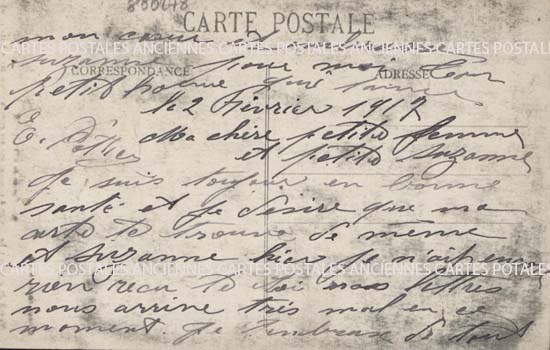 880648
CARTE POSTALE
mon cœur
CARTES POSTALES ANCIENNES CARTES POSTALES ANCIENNES CARTES POSTALES
suzanne pour moi ton
CORRESPONDANCE ADRESSE
petit homme qui
le 2 Février 1917
E. Ma chère petite femme
et petite suzanne
Je suis toujour en bonne
santé et je désire que ma
carte te trouve de même
et suzanne hier je n'ait eu
CARTES POSTALES ANCIENNES CARTES POSTALES ANCIENNES CARTES POSTALES
rien recu de toi nos lettres
nous arrive très mal en ce
moment. Je t'embrasse de tout